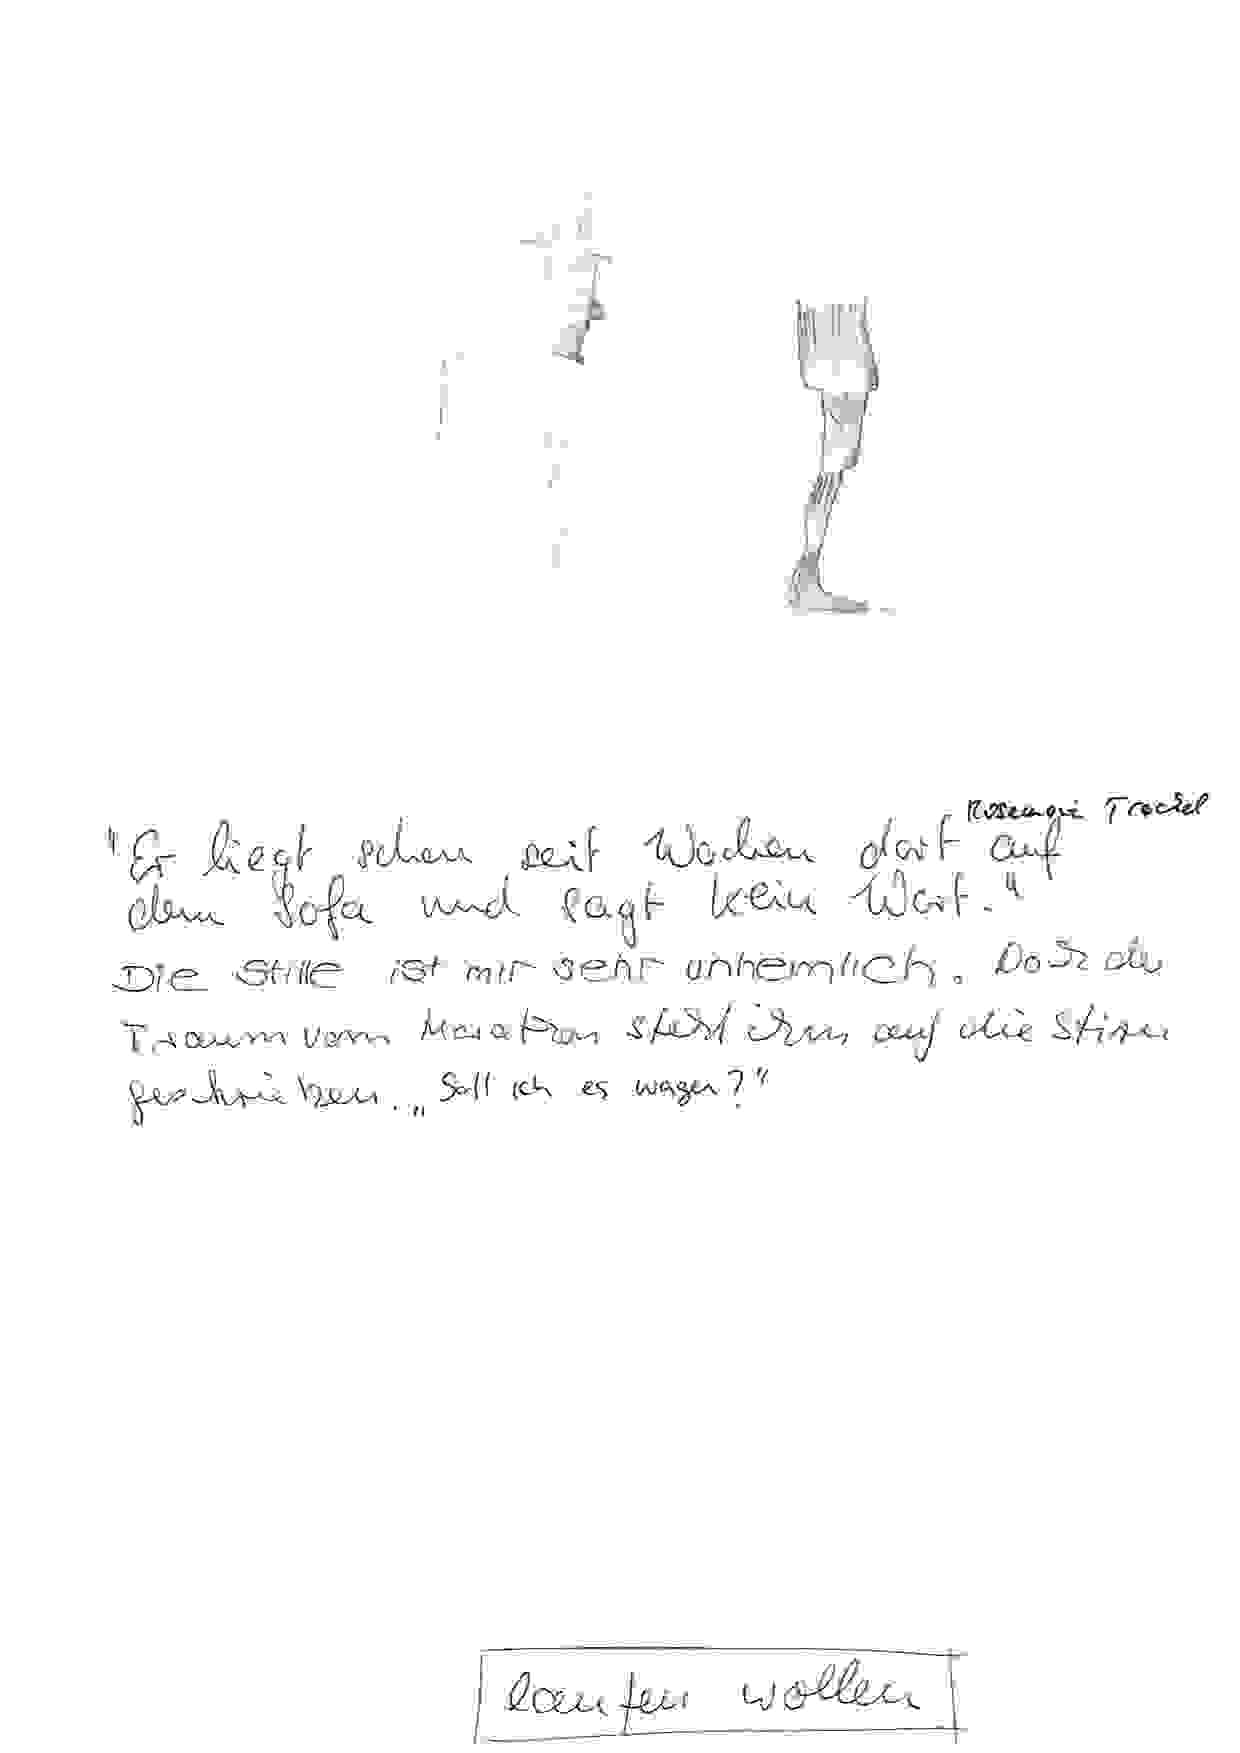 Rosemarie Trockel
"Er liegt schon seit Wochen dort auf
dem Sofa und sagt kein Wort."
Die Stille ist mir sehr unheimlich. Doch der
Traum vom Marathon steht ihm auf die Stirn
geschrieben. „Soll ich es wagen?"
laufen wollen